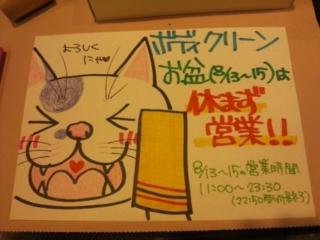 よろしく
にゃ
ボディクリーン
お盆(8/13〜15)は
休まず
営業!!
8/13〜15の営業時間
11:00〜23:30
(22:50受付終了)